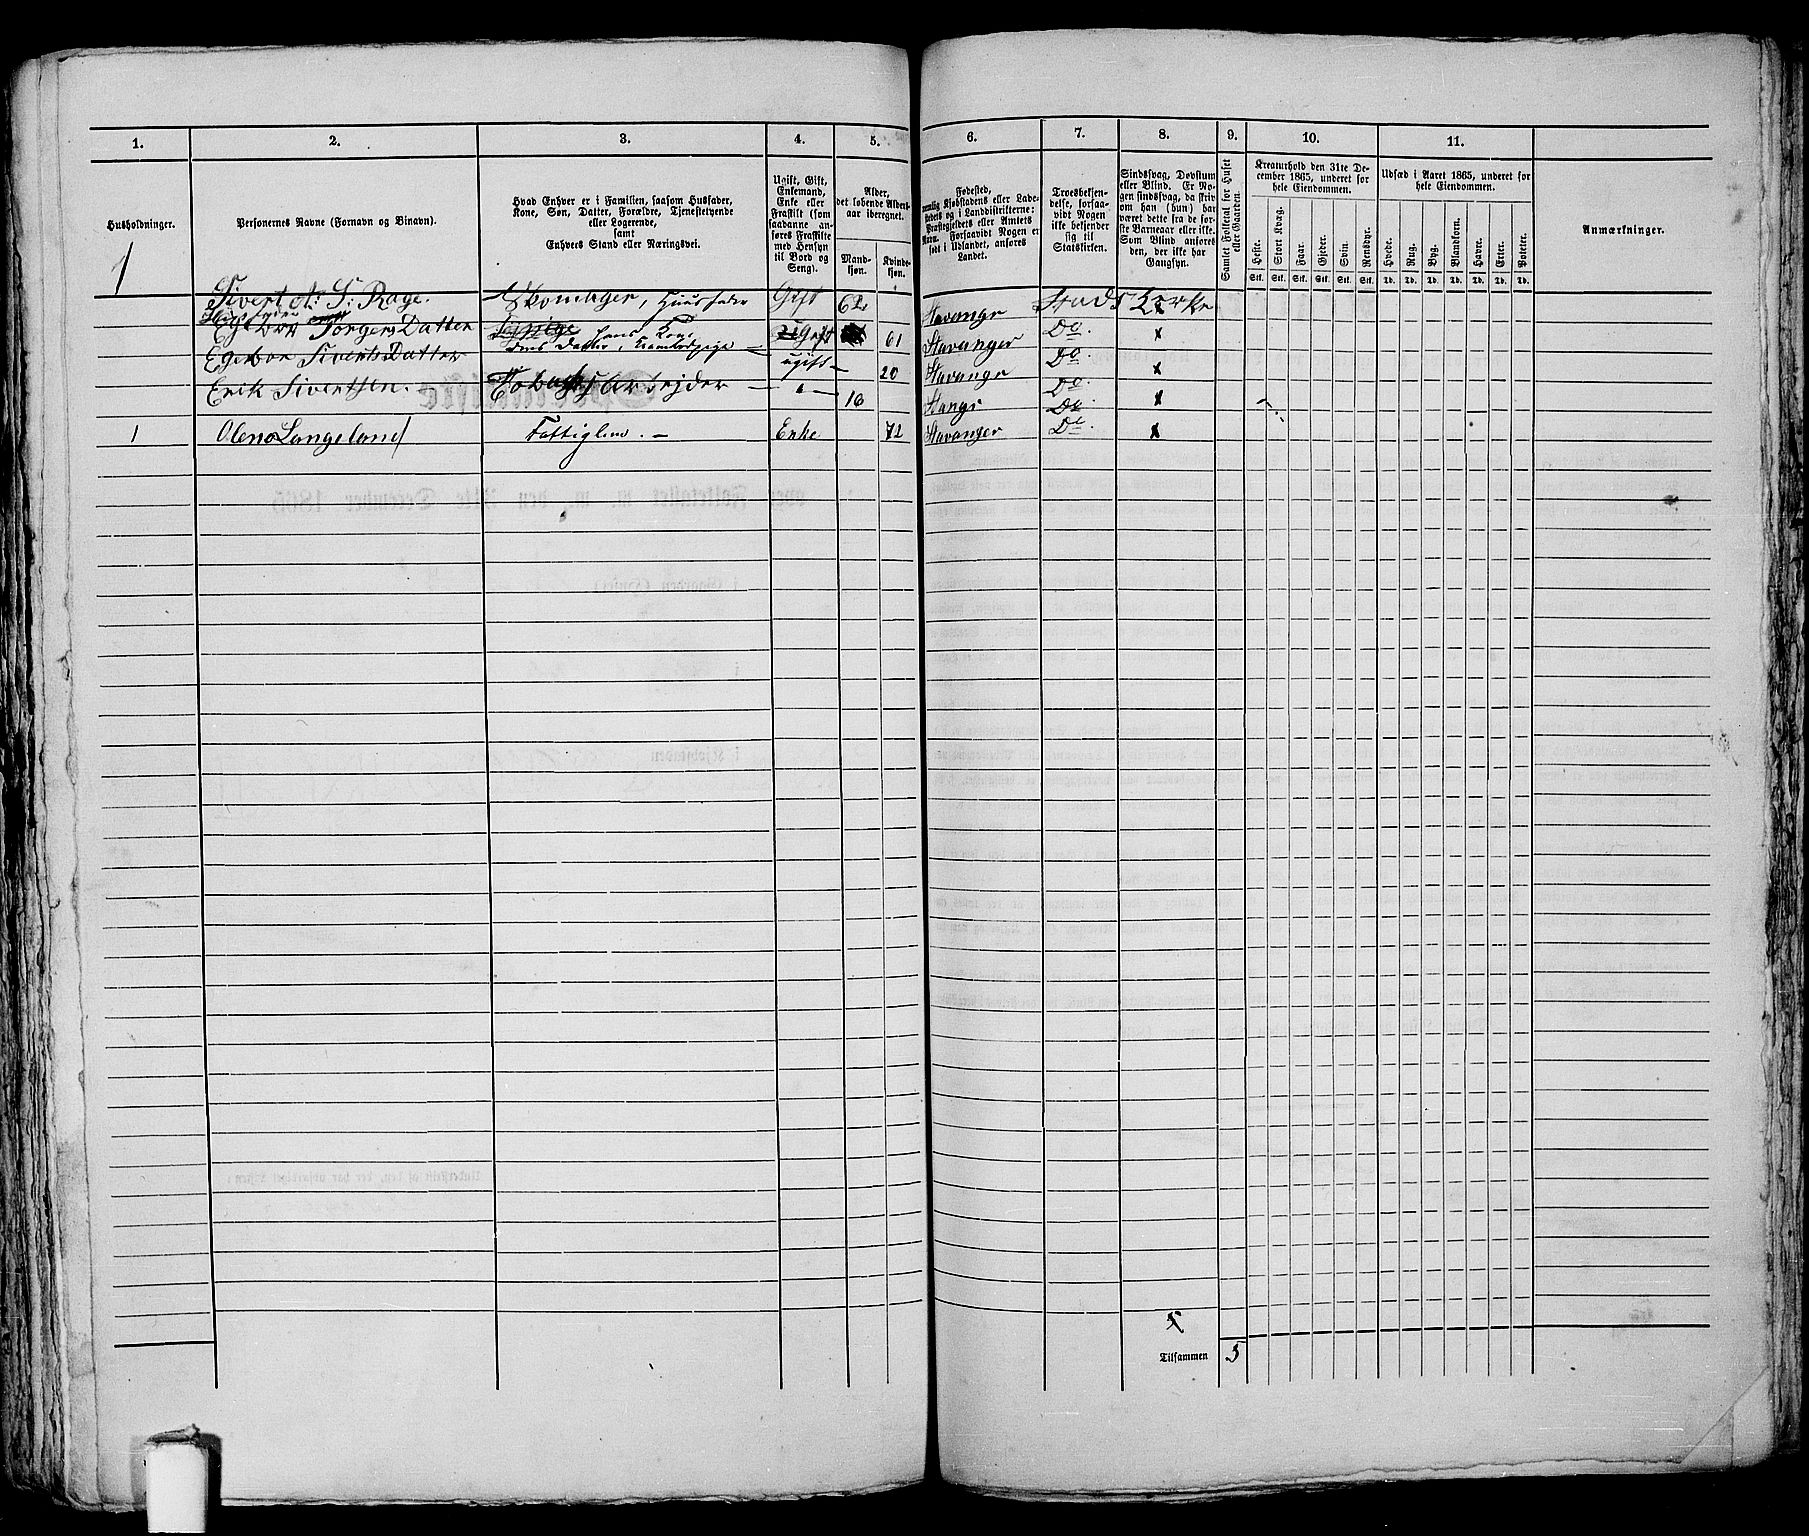 1. 2. 3. 4. 5. 6. 7. 8. 9. 10. 11.
Husholdninger.
Personernes Navne (Fornavn og Binavn).
Hvad Enhver er i Familien, saasom Husfader,
Kone, Søn, Datter, Forældre, Tjenestetyende
eller Logerende,
samt
Enhvers Stand eller Næringsvei.
Ugift, Gift,
Enkemand,
Enke eller
Fraskilt (som
saadanne an-
føres Fraskilte
med Hensyn
til Bord og
Seng).
Alder,
det løbende Alders-
aar iberegnet.
Mand-
kjøn.
Kvinde-
kjøn.
Fødested,
nemlig Kjøbstadens eller Lade-
stedets og i Landdistrikterne:
Præstegjeldets eller Amtets
Navn. Forsaavidt Nogen er
født i Udlandet, anføres
Landet.
Troesbekjen-
delse, forsaa-
vidt Nogen
ikke bekjender
sig til
Statskirken.
Sindssvag, Døvstum
eller Blind. Er No-
gen sindssvag, da skriv
om han (hun) har
været dette fra de før-
ste Barneaar eller ikke.
Som Blind anføres
den, der ikke har
Gangsyn.
Samlet Folketal for Huset
eller Gaarden.
Kreaturhold den 31te De-
cember 1865, underet for
hele Eiendommen.
Heste. Stort Kvæg. Faar. Gjeder. Svin. Rensdyr.
Stk. Stk. Stk. Stk. Stk. Stk.
Udsæd i Aaret 1865, underet for
hele Eiendommen.
Hvede. Rug. Byg. Blandkorn. Havre. Erter. Poteter.
Td. Td. Td. Td. Td. Td. Td.
Anmærkninger.
1
Sivert A: S: Rage. Skomager, Huusfader Gift 62 Stavange Stads Kerke x
Torgers Datter hans Kone Gift 61 Stavanger Do x
Egebor Siverts Datter deres Datter, ugift 20 Stavange Do x
Erik Sivertsen. Tobaksarbejder " 16 Do x
Do
1 Olena Langeland Fattiglem. Enke 72 Stavanger Do x
5
Tilsammen 5